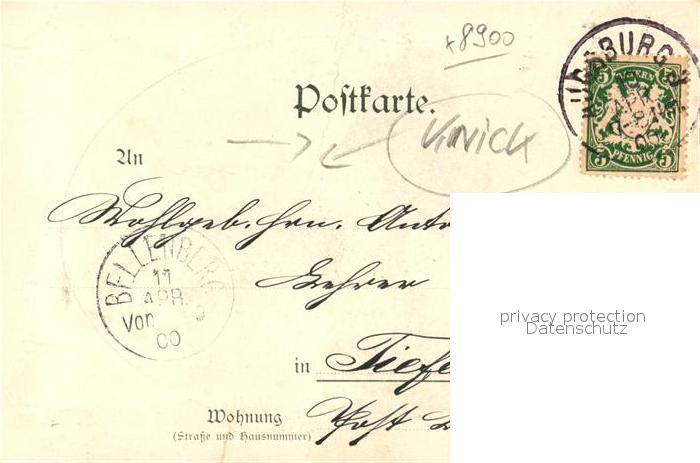 x8900
Postkarte.
AUGSBURG
BAYERN
5 5
PFENNIG
KNICK
An
Wohlgeb. Hrn. Anto
BELLENBERG
11
APR
Vor
00
Lehrer
in Tiefe
Wohnung Post
(Straße und Hausnummer)
privacy protection
Datenschutz